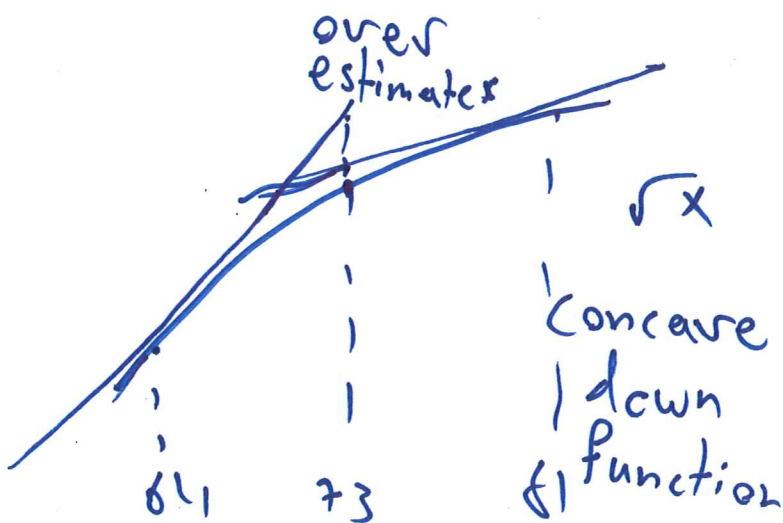 over
estimates
√x
concave
down
function
64
73
81